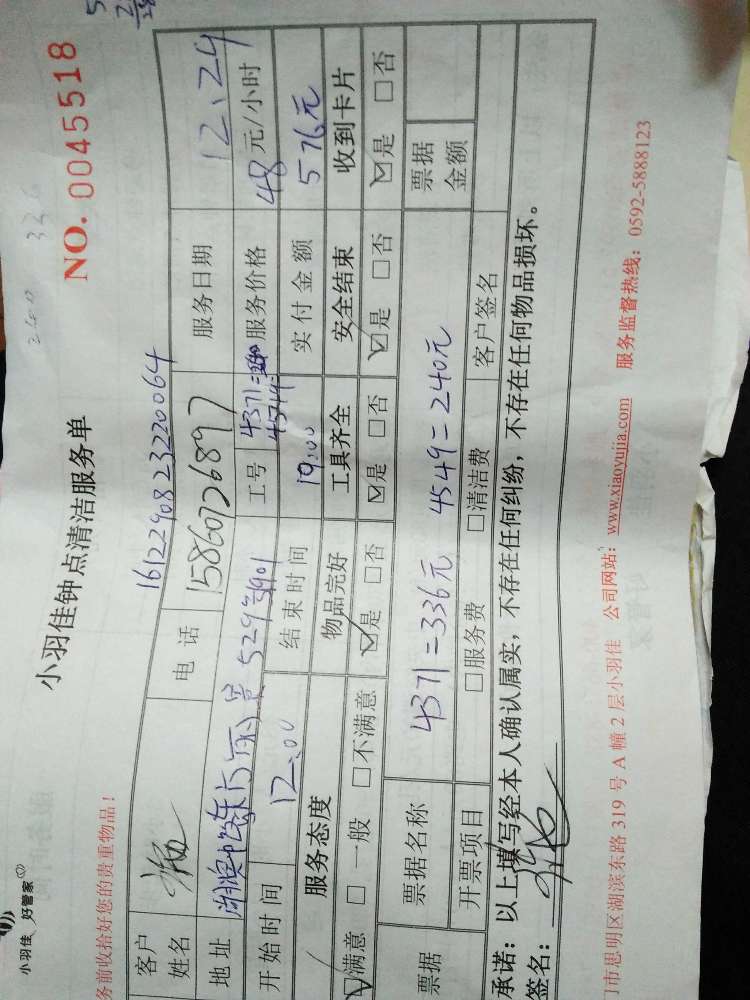 小羽佳 好管家
小羽佳钟点清洁服务单
NO. 0045518
240 336
务前收拾好您的贵重物品!
16122908223220064
客户姓名 电话 15860726897 服务日期 12、24
地址 529号901 工号 4371 服务价格 48元/小时
开始时间 12:00 结束时间 19:00 实付金额 576元
服务态度 物品完好 工具齐全 安全结束 收到卡片
☑满意 □一般 □不满意 ☑是 □否 ☑是 □否 ☑是 □否 ☑是 □否
票据 票据名称 4371=336元 4549=240元 票据金额
开票项目 □服务费 □清洁费 客户签名
承诺：以上填写经本人确认属实，不存在任何纠纷，不存在任何物品损坏。
签名：
门市思明区湖滨东路 319 号 A 幢 2 层小羽佳 公司网站：www.xiaoyujia.com 服务监督热线：0592-5888123